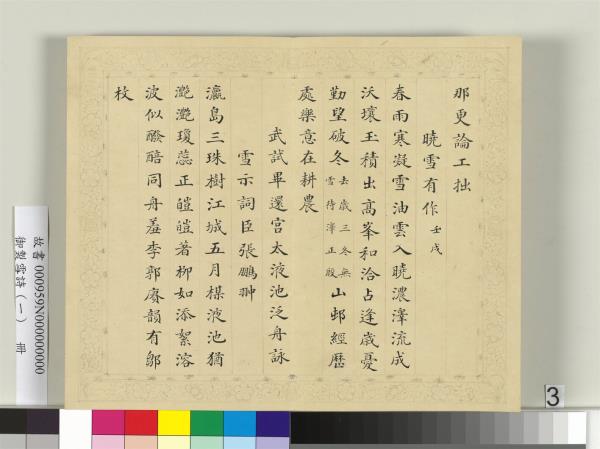 那更論工拙
曉雪有作壬戌
春雨寒凝雪油雲入曉濃澤流成
沃壤玉積出高峯和洽占逢歲憂
勤望破冬去歲三冬無雪待澤正殷山邨經歷
處樂意在耕農
武試畢還宮太液池泛舟詠
雪示詞臣張鵬翀
瀛島三珠樹江城五月楳液池猶
灧灧瓊蕊正皚皚著柳如添絮溶
波似醱醅同舟羞李郭賡韻有鄒
枚
故書 000959N000000000
御製雪詩（一） 冊
3